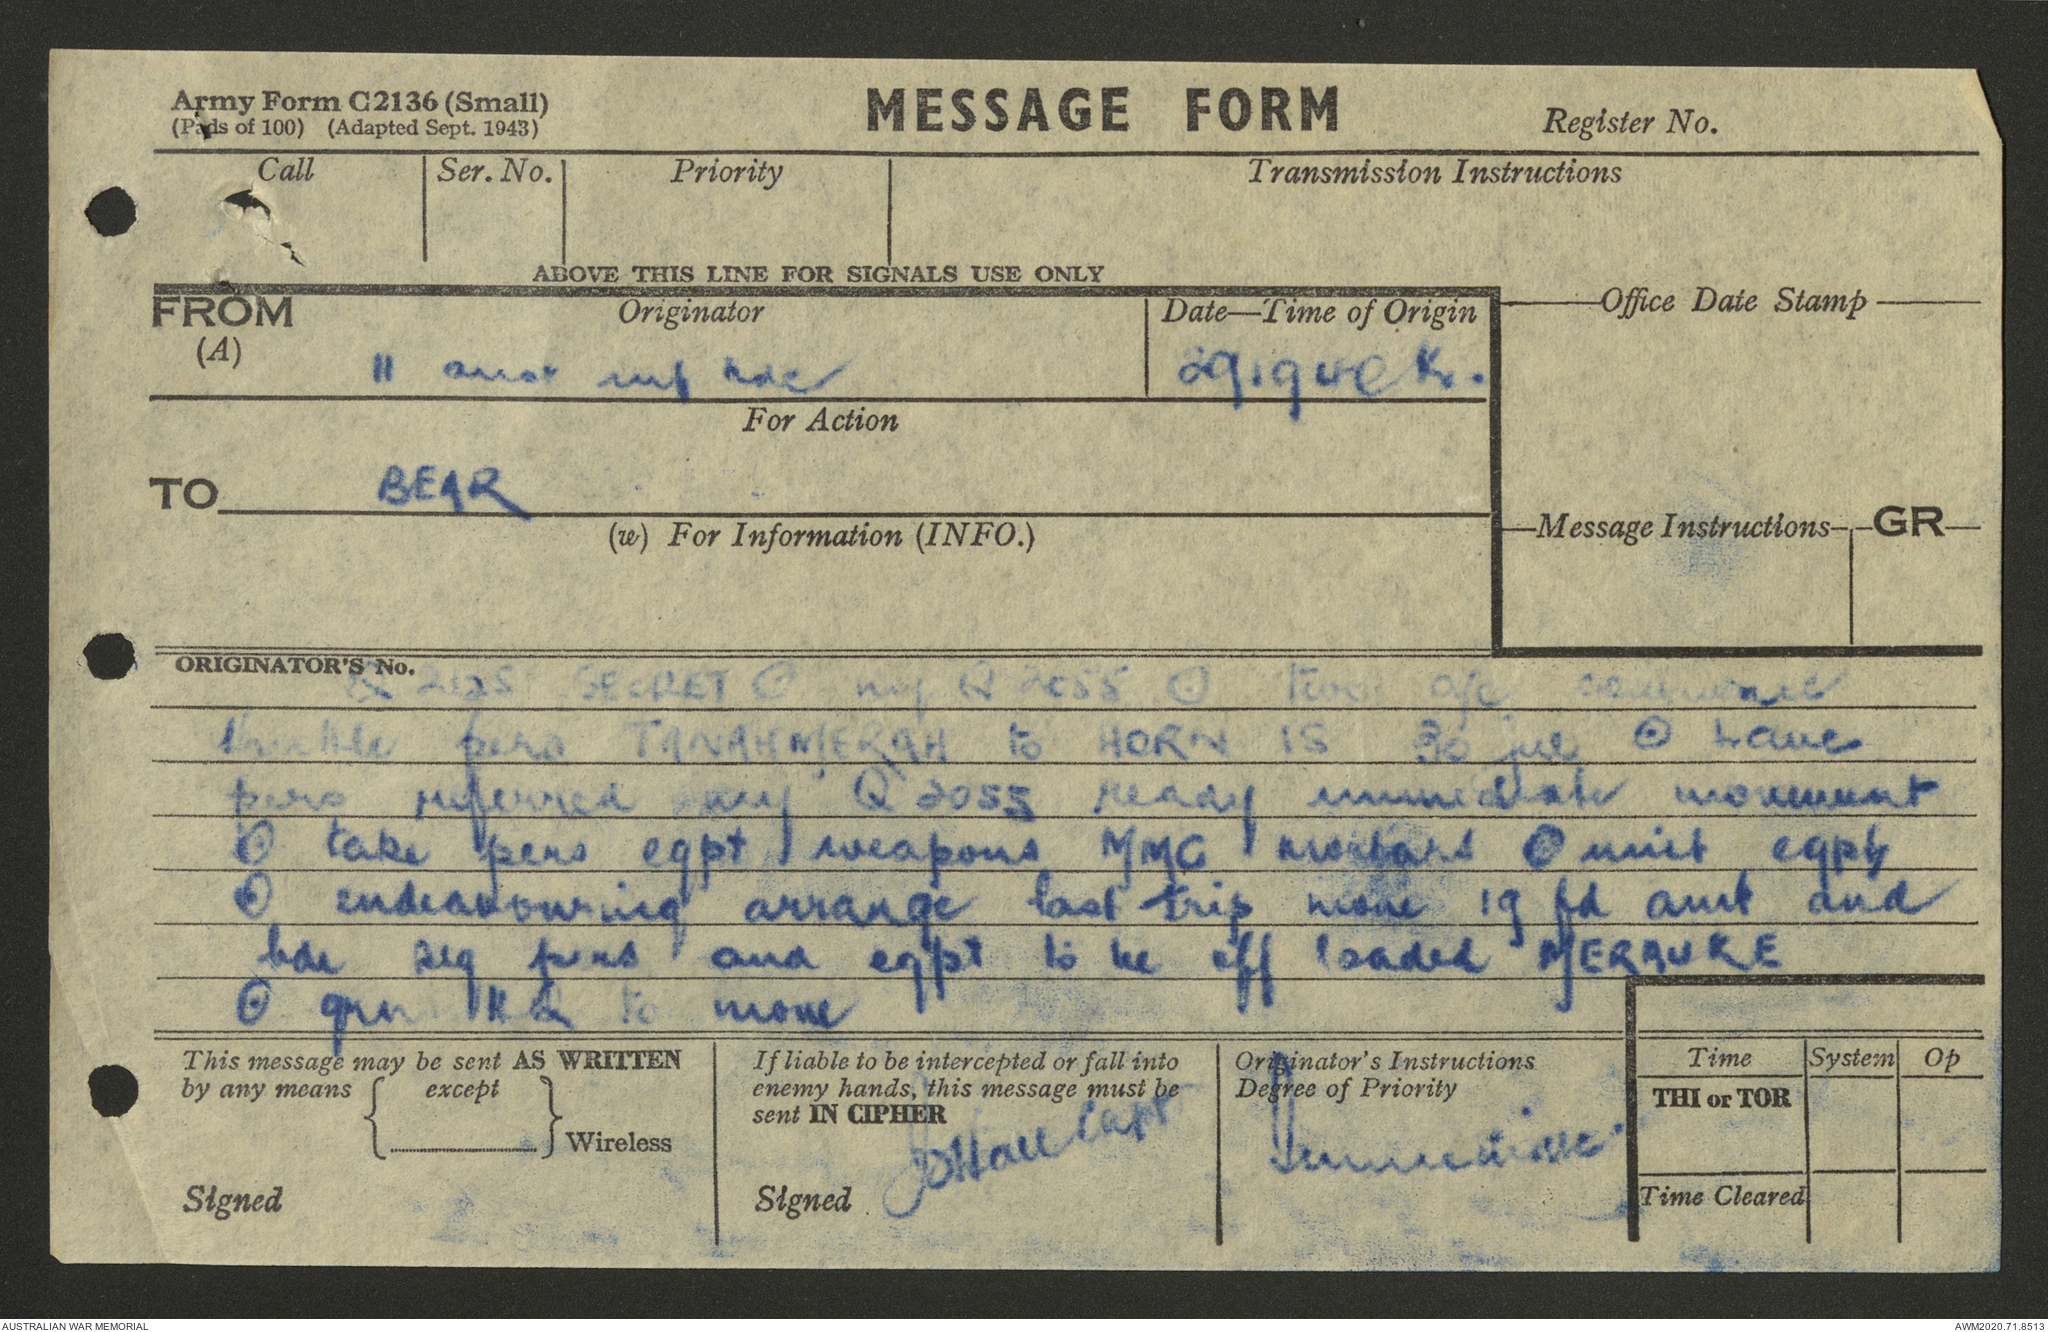 Army Form C2136 (Small)
(Pads of 100) (Adapted Sept. 1943)
MESSAGE FORM
Register No.
Call Ser. No. Priority Transmission Instructions
ABOVE THIS LINE FOR SIGNALS USE ONLY
FROM
(A)
Originator
Date—Time of Origin
Office Date Stamp
11 aust inf bde
For Action
TO BEAR
(w) For Information (INFO.)
Message Instructions GR
ORIGINATOR'S No.
SECRET ⊙ my Q 2055 ⊙ two a/c commence
shuttle pers TANAHMERAH to HORN IS 30 jul ⊙ have
pers referred my Q 2055 ready immediate movement
⊙ take pers eqpt weapons MMG mortars ⊙ unit eqpt
⊙ endeavouring arrange last trip move 19 fd amb and
bde sig pers and eqpt to be off loaded MERAUKE
⊙ HQ to move
This message may be sent AS WRITTEN
by any means except
Wireless
Signed
If liable to be intercepted or fall into
enemy hands, this message must be
sent IN CIPHER
Signed Hall Capt
Originator's Instructions
Degree of Priority
Immediate
Time System Op
THI or TOR
Time Cleared
AUSTRALIAN WAR MEMORIAL
AWM2020.71.8513